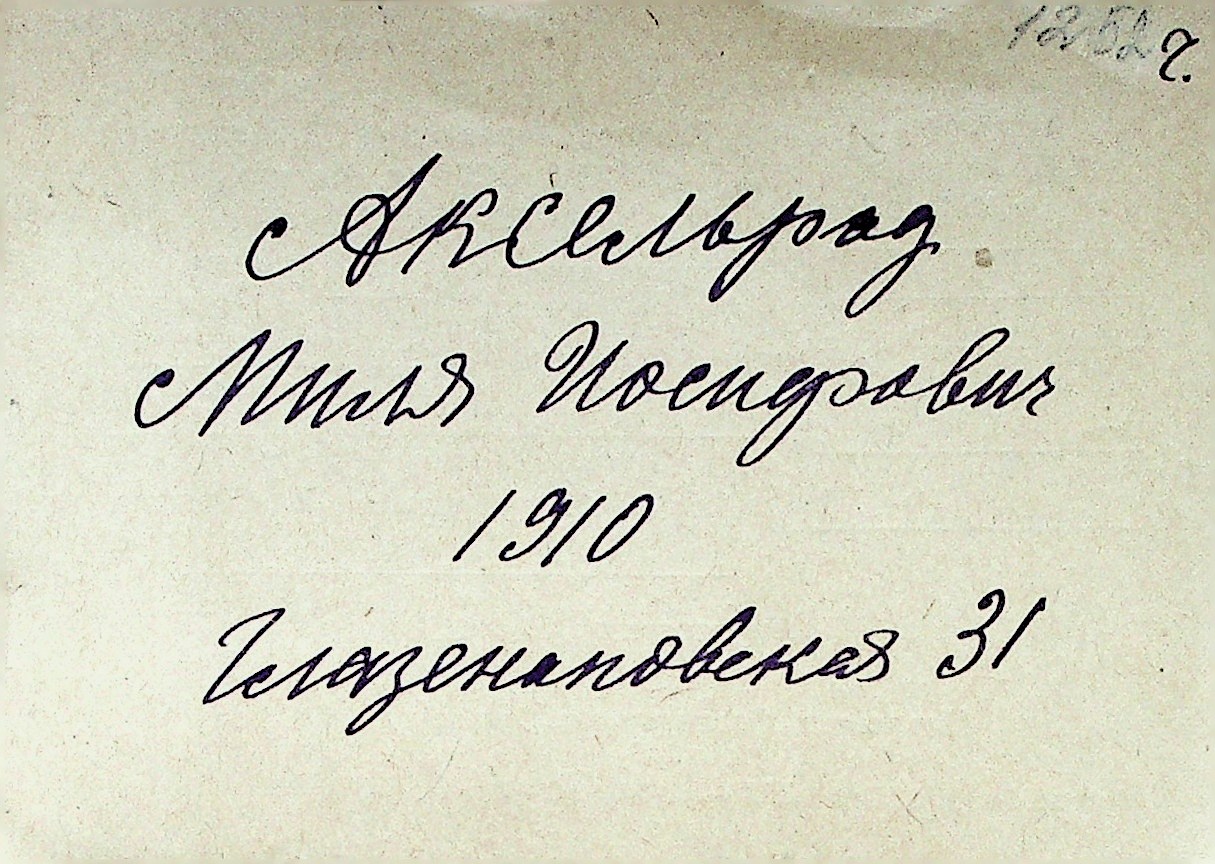 1252 г.
Аксельрад
Миля Иосифович
1910
Глазенаповская 31